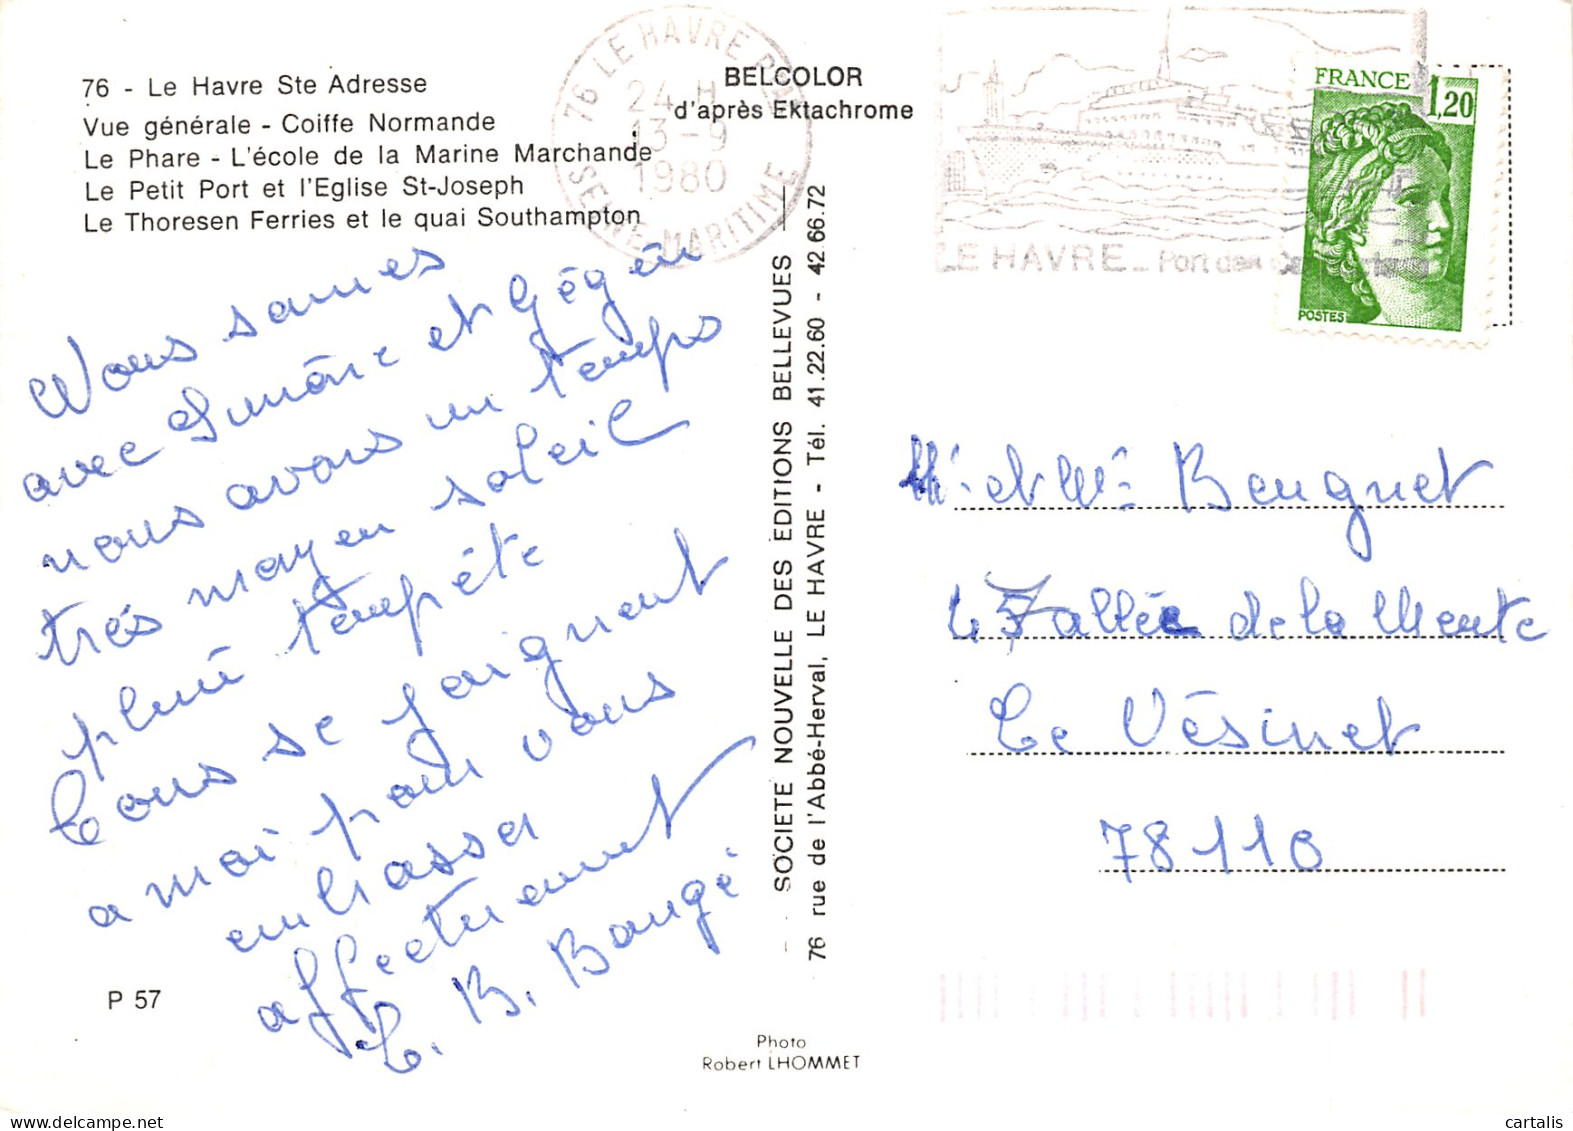 76 - Le Havre Ste Adresse
Vue générale - Coiffe Normande
Le Phare - L'école de la Marine Marchande
Le Petit Port et l'Eglise St-Joseph
Le Thoresen Ferries et le quai Southampton
76 LE HAVRE
24 H
13-9
1980
SEINE MARITIME
BELCOLOR
d'après Ektachrome
LE HAVRE _ Port de
FRANCE
1,20
POSTES
Nous sommes
avec et Gégén
nous avons un temps
très moyen soleil
pluie tempête
Tous se joignent
a moi pour vous
embrasser
affectueusement
B. Baugé
P 57
SOCIETE NOUVELLE DES EDITIONS BELLEVUES —
76 rue de l'Abbé-Herval, LE HAVRE - Tél. 41.22.60 - 42 66.72
Mr et Mme Beugnet
allée de la Meute
Le Vésinet
78110
Photo
Robert LHOMMET
cartalis